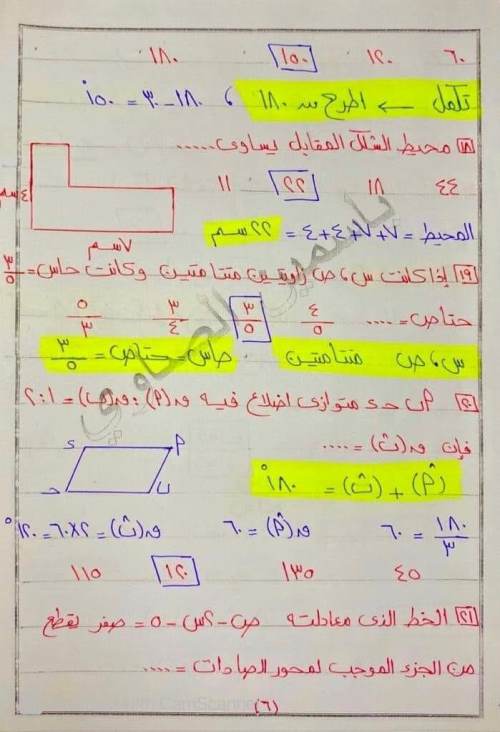 ٦٠ ١٢٠ ١٥٠ ١٨٠
تكمل ← اطرح من ١٨٠ ، ١٨٠ - ٣٠ = ١٥٠°
١٨ محيط الشكل المقابل يساوى .....
٤٤ ١٨ ٢٢ ١١
٤ سم
٧ سم
المحيط = ٧ + ٧ + ٤ + ٤ = ٢٢ سم
١٩ إذا كانت س ، ص زاويتين متتامتين وكانت حاس = ٣/٥
حتاص = ....
٤/٥ ٣/٥ ٣/٤ ٥/٣
س ، ص متتامتين حاس = حتاص = ٣/٥
٢٠ م ب ح ء متوازى اضلاع فيه ق(م) : ق(ب) = ١ : ٢
فإن ق(ب) = ....
ء م
ح ب
(م) + (ب) = ١٨٠°
١٨٠/٣ = ٦٠ ق(م) = ٦٠ ق(ب) = ٢×٦٠ = ١٢٠°
٤٥ ١٣٥ ١٢٠ ١١٥
٢١ الخط الذى معادلته ص - ٢س - ٥ = صفر يقطع
من الجزء الموجب لمحور الصادات = ....
(٦)
ياسمين الصاوي
CamScanner